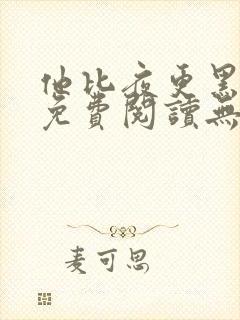 他比夜更黑
免費閱讀無
麦可思